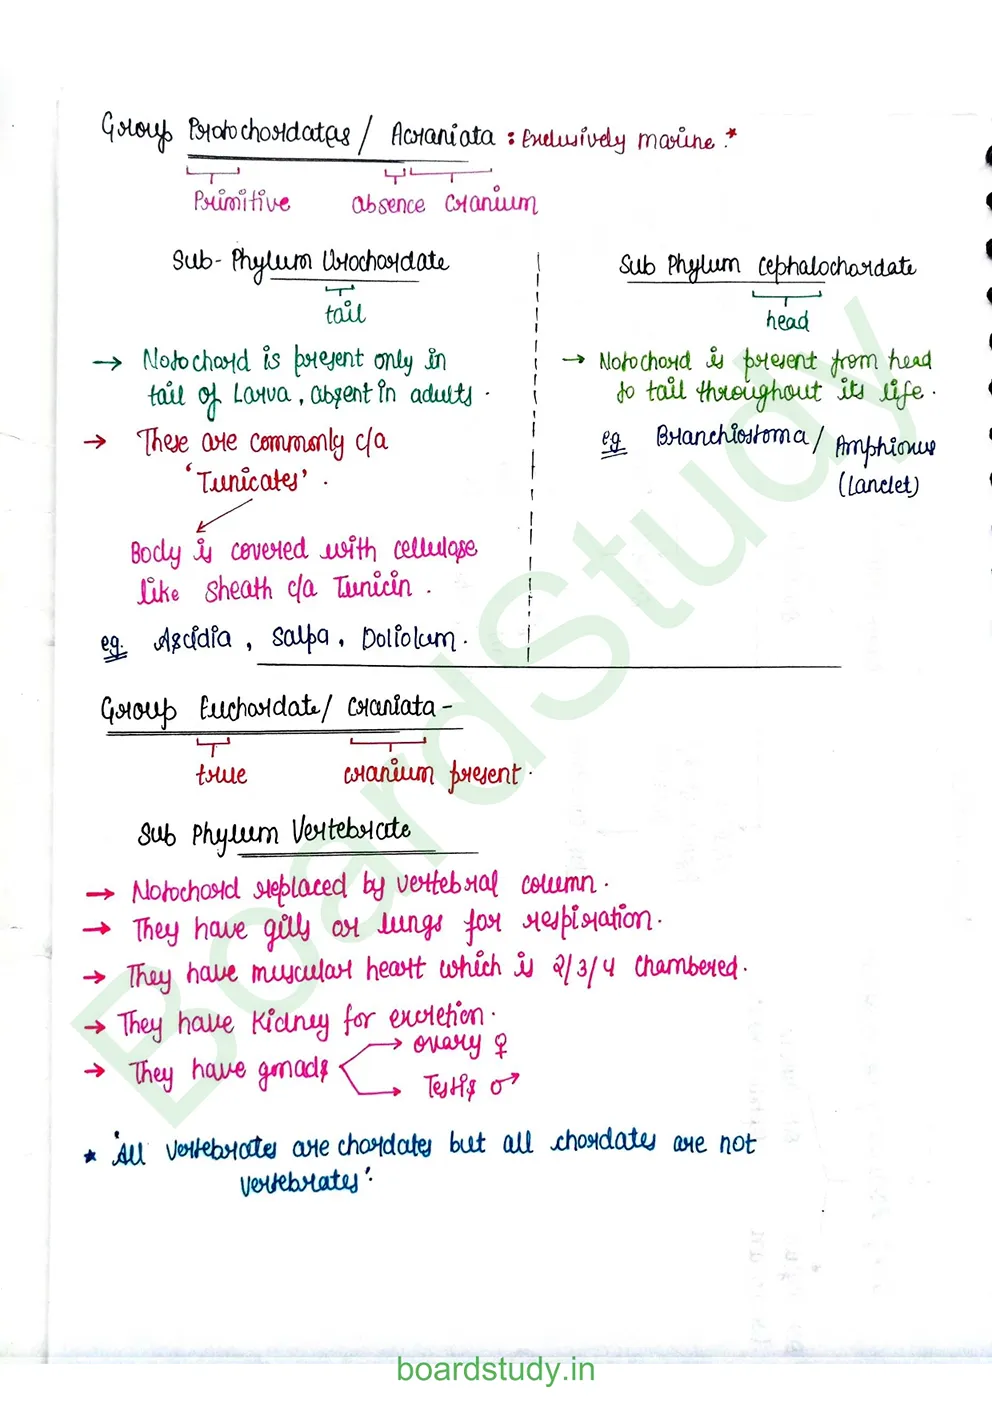 Group Protochordates / Acraniata : Exclusively marine .*
Primitive absence cranium
Sub-Phylum Urochordate
tail
→ Notochord is present only in
tail of Larva, absent in adults .
→ These are commonly c/a
'Tunicates' .
Body is covered with cellulose
like sheath c/a Tunicin .
eg. Ascidia , Salpa , Doliolum .
Sub Phylum Cephalochordate
head
→ Notochord is present from head
to tail throughout its life .
eg Branchiostoma / Amphioxus
(Lanclet)
Group Euchordate / Craniata -
true cranium present .
Sub Phylum Vertebrate
→ Notochord replaced by vertebral column .
→ They have gills or lungs for respiration .
→ They have muscular heart which is 2/3/4 Chambered .
→ They have Kidney for excretion .
→ They have gonads → ovary ♀
→ Testis ♂
* 'All vertebrates are chordates but all chordates are not
vertebrates' .
BoardStudy
boardstudy.in